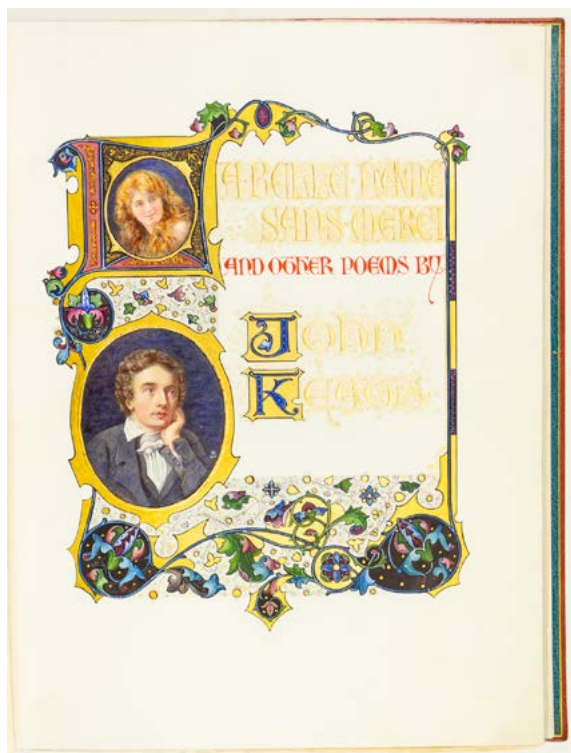 LA·BELLE·DAME
SANS·MERCI
AND OTHER POEMS BY
JOHN
KEATS